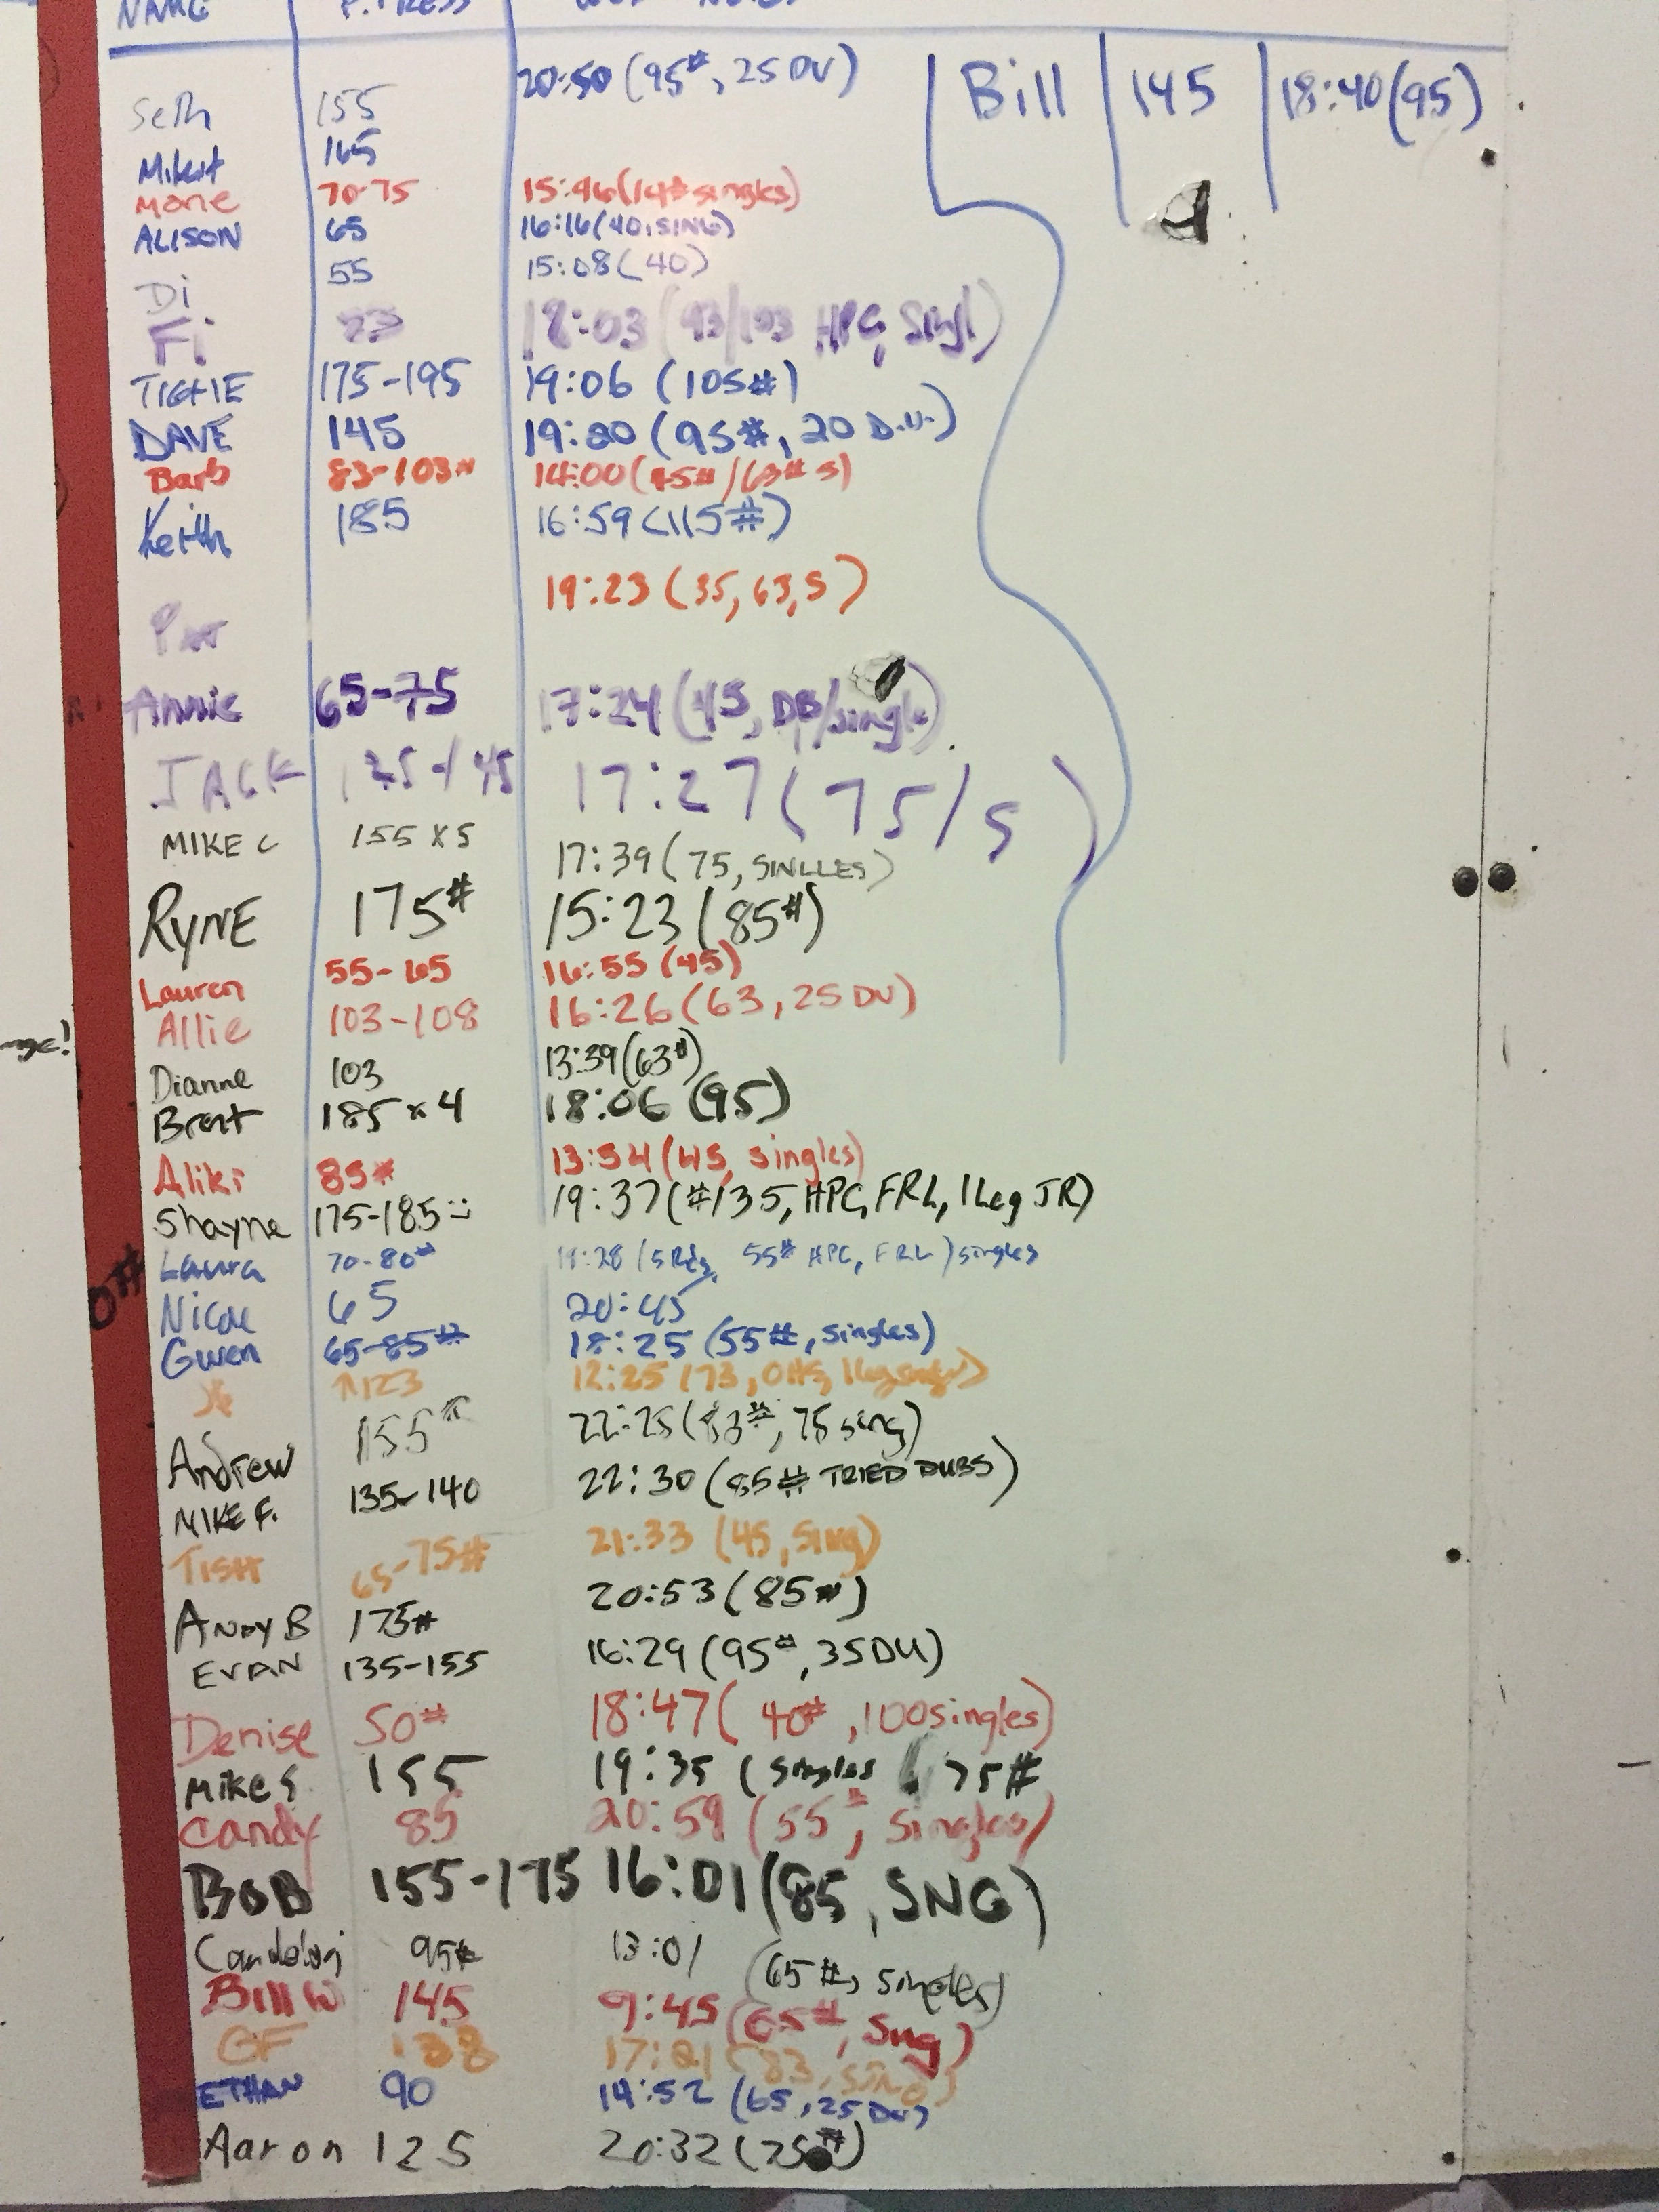 NAME P.PRESS
Seth 155 20:50 (95#, 25 DU)
Bill 145 18:40 (95)
165
70-75 15:46 (14# singles)
ALISON 65 16:16 (40, SING)
Di 55 15:08 (40)
Fi 18:03 HPC, Singl)
TIGHE 175-195 19:06 (105#)
DAVE 145 19:20 (95#, 20 D.U.)
Barb 83-103# 14:00 (45#/63# S)
Keith 185 16:59 (115#)
19:23 (35, 63, S)
Annie 65-75 17:24 (45, DB/single)
JACK 135-145 17:27 (75/S)
MIKE C 155 x 5 17:39 (75, SINLLES)
RYNE 175# 15:23 (85#)
Lauren 55-65 16:55 (45)
Allie 103-108 16:26 (63, 25 DU)
Dianne 103 13:39 (63#)
Brent 185 x 4 18:06 (95)
Aliki 85# 13:54 (45, singles)
Shayne 175-185 :) 19:37 (#135, HPC, FRL, 1 Leg JR)
Laura 70-80# (5 Rds, 55# HPC, FRL) singles
Nicole 65 20:45
Gwen 65-85# 18:25 (55#, singles)
123 12:25 (73, OHS,
Andrew 155# 22:25 (83#, 75 sing)
MIKE F. 135-140 22:30 (85# TRIED DUBS)
TISH 65-75# 21:33 (45, Sing)
ANDY B 175# 20:53 (85#)
EVAN 135-155 16:29 (95#, 35 DU)
Denise 50# 18:47 (40#, 100 singles)
Mike S. 155 19:35 (singles 75#
Candy 85 20:59 (55#, Singles)
BOB 155-175 16:01 (85, SNG)
95# 13:01 (65#, singles)
Bill W 145 9:45 (65#, Sng)
GF 17:21 (83, SING)
ETHAN 90 14:52 (65, 25 DU)
Aaron 125 20:32 (75#)